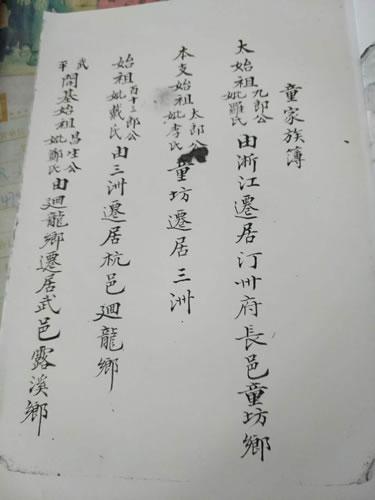 童家族簿
太始祖九郎公妣羅氏由浙江遷居汀州府長邑童坊鄉
本支始祖太郎公妣李氏童坊遷居三洲
始祖百十三郎公妣戴氏由三洲遷居杭邑廻龍鄉
武平開基始祖昌生公妣鄭氏由廻龍鄉遷居武邑露溪鄉